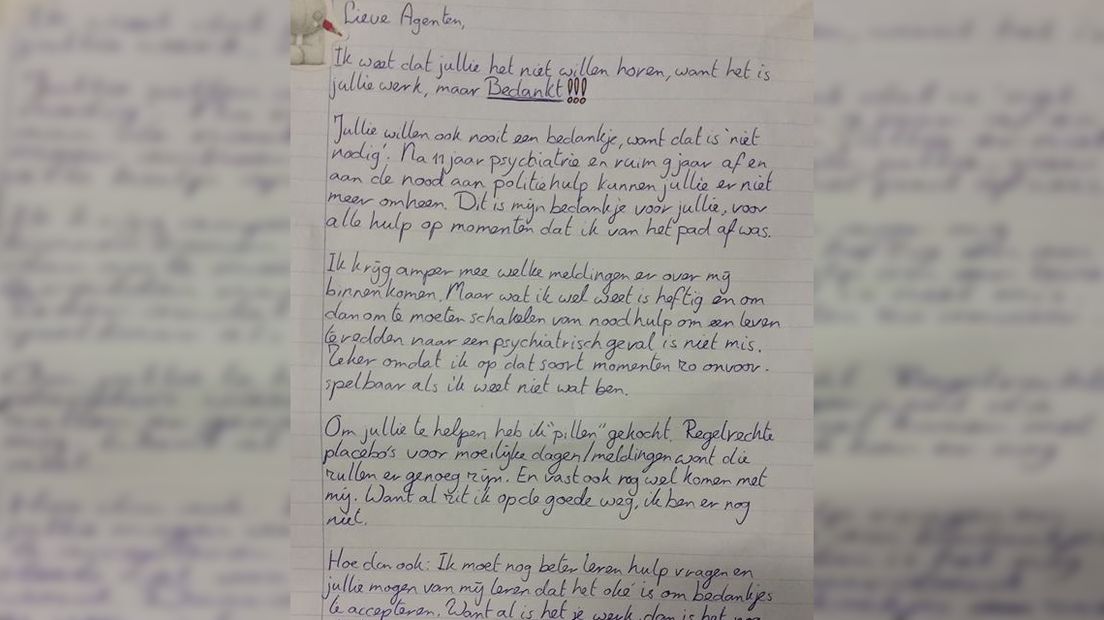 Lieve Agenten,
Ik weet dat jullie het niet willen horen, want het is
jullie werk, maar Bedankt!!!
Jullie willen ook nooit een bedankje, want dat is 'niet
nodig'. Na 11 jaar psychiatrie en ruim 9 jaar af en
aan de nood aan politiehulp kunnen jullie er niet
meer omheen. Dit is mijn bedankje voor jullie, voor
alle hulp op momenten dat ik van het pad af was.
Ik krijg amper mee welke meldingen er over mij
binnenkomen. Maar wat ik wel weet is heftig en om
dan om te moeten schakelen van noodhulp om een leven
te redden naar een psychiatrisch geval is niet mis.
Zeker omdat ik op dat soort momenten zo onvoor-
spelbaar als ik weet niet wat ben.
Om jullie te helpen heb ik "pillen" gekocht. Regelrechte
placebo's voor moeilijke dagen/meldingen want die
zullen er genoeg zijn. En vast ook nog wel komen met
mij. Want al zit ik op de goede weg, ik ben er nog
niet.
Hoe dan ook: Ik moet nog beter leren hulp vragen en
jullie mogen van mij leren dat het oké is om bedankjes
te accepteren. Want al is het je werk, dan is het nog